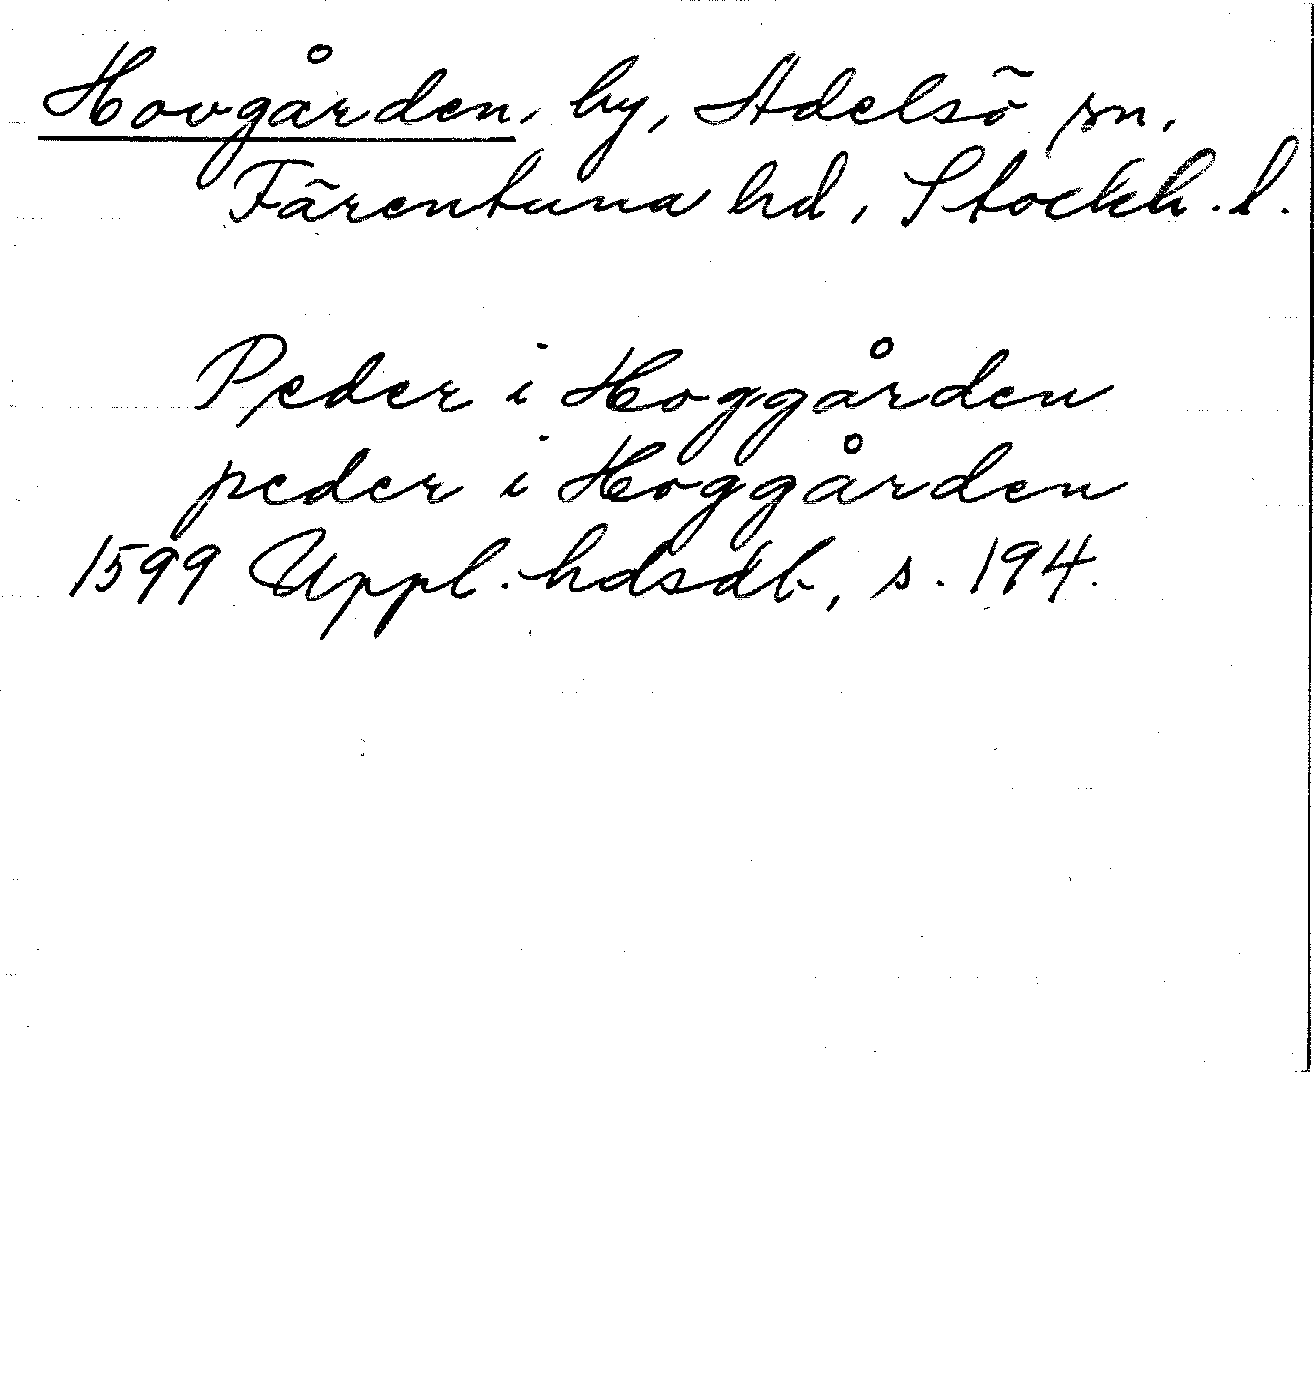 Hovgården, by, Adelsö sn,
Färentuna hd, Stockh. l.
Peder i Hoggården
peder i Hoggården
1599 Uppl. hdsdb, s. 194.